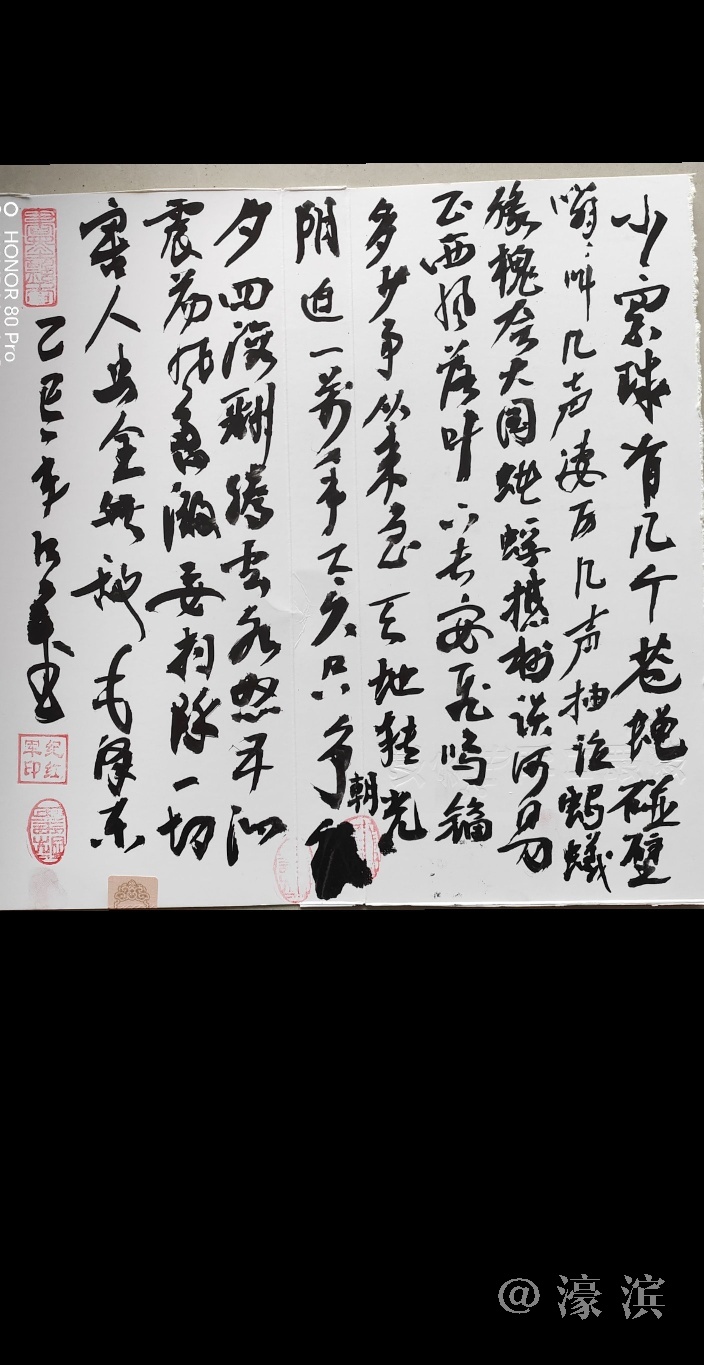 小寰球有几个苍蝇碰壁
嗡々叫几声凄厉几声抽泣蚂蚁
缘槐夸大国蚍蜉撼树谈何易
正西风落叶下长安飞鸣镝
多少事从来急天地转光
阴迫一万年太久只争朝
夕四海翻腾云水怒五洲
震荡风雷激要扫除一切
害人虫全无敌毛泽东
乙巳年
纪红军印
HONOR 80 Pro
@濠滨